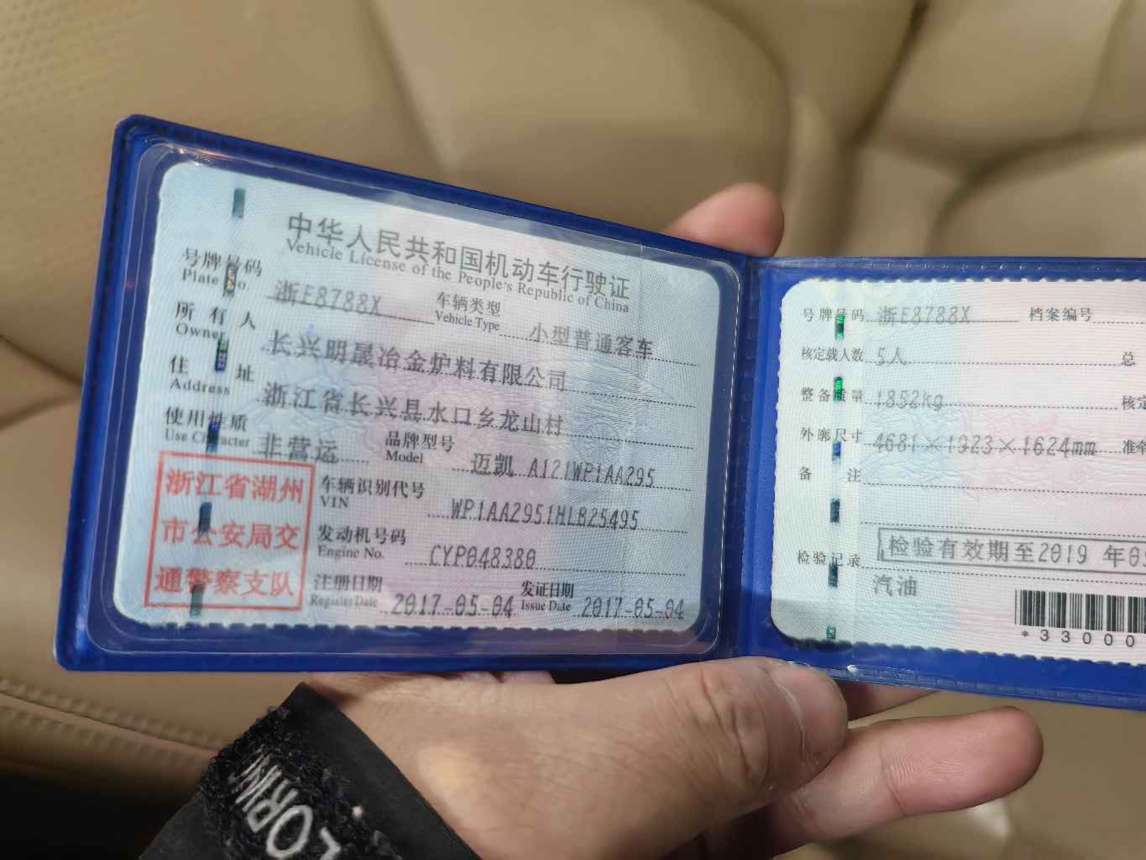 中华人民共和国机动车行驶证
Vehicle License of the People's Republic of China
号牌号码 浙E8788X 车辆类型 小型普通客车
Plate No. Vehicle Type
所有人 长兴明晟冶金炉料有限公司
Owner
住址 浙江省长兴县水口乡龙山村
Address
使用性质 非营运 品牌型号 迈凯 A121WP1AA295
Use Character Model
浙江省湖州
市公安局交
通警察支队
车辆识别代号 WP1AA2951HLB25495
VIN
发动机号码 CYP048380
Engine No.
注册日期 2017-05-04 发证日期 2017-05-04
Register Date Issue Date
号牌号码 浙E8788X 档案编号
核定载人数 5人 总
整备质量 1852kg 核定
外廓尺寸 4681×1923×1624mm 准牵
备注
检验记录 检验有效期至2019 年0
汽油
*33000
LORIN